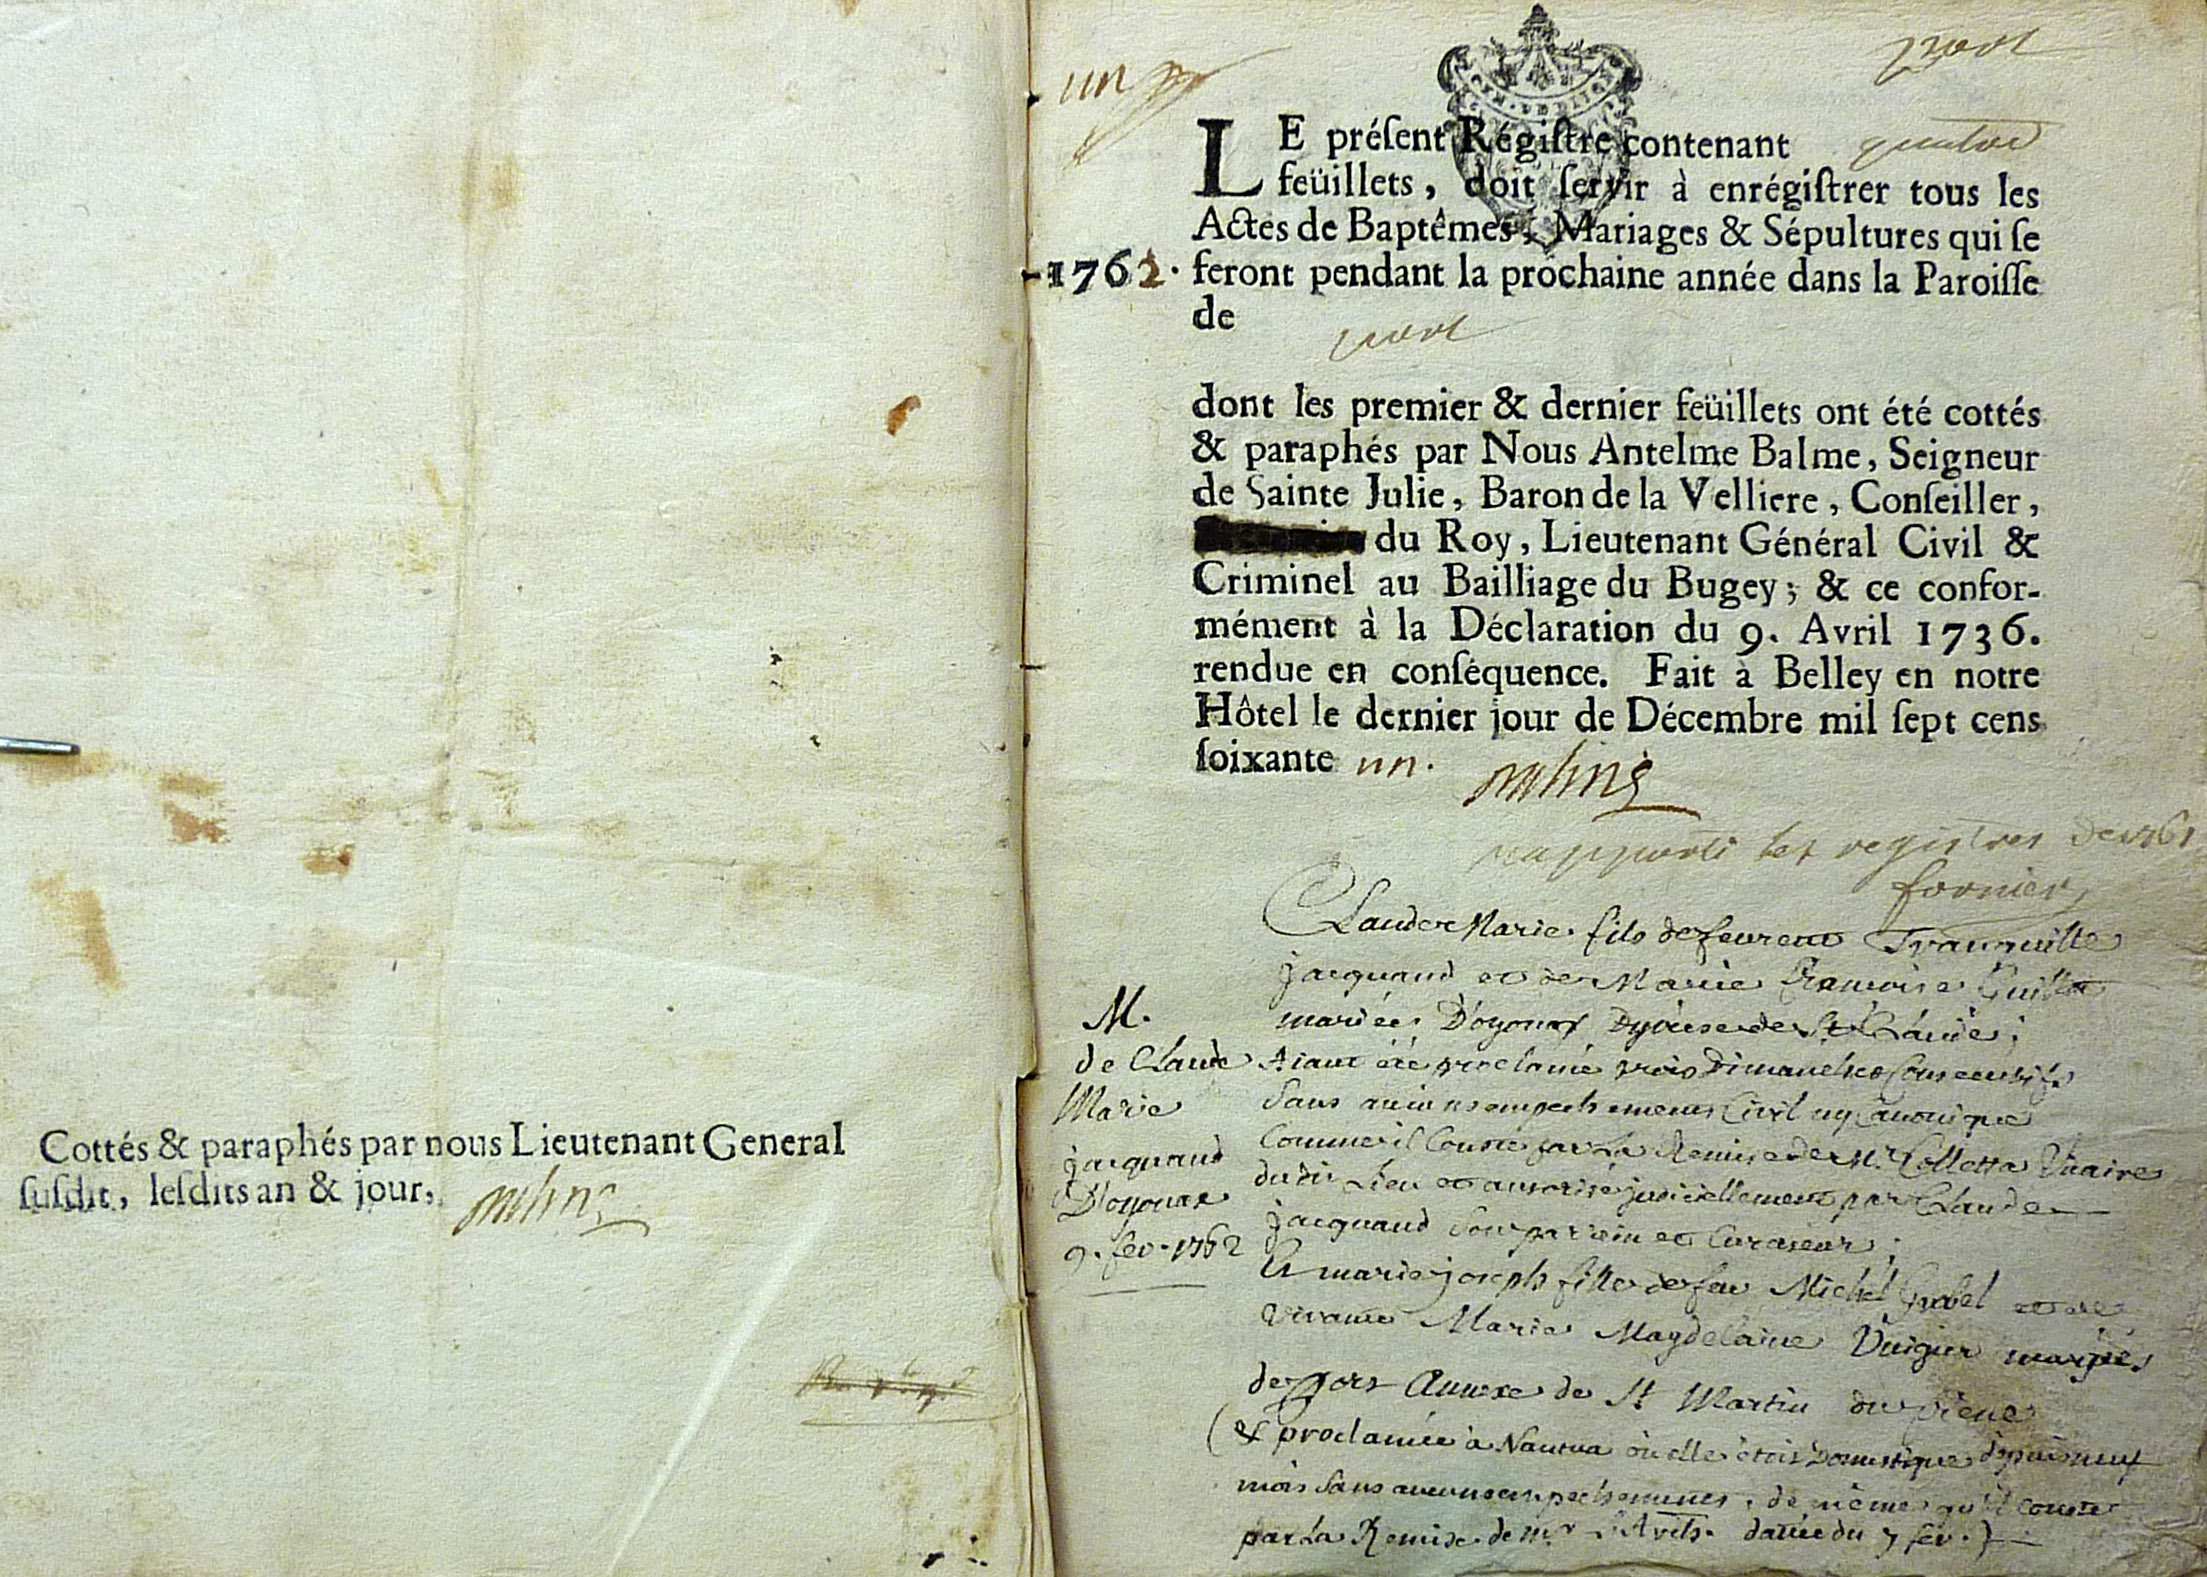 Cottés & paraphés par nous Lieutenant General
ſuſdit, leſdits an & jour,
un
port
LE préſent Régiſtre contenant quatre
feüillets, doit ſervir à enrégiſtrer tous les
Actes de Baptêmes, Mariages & Sépultures qui ſe
1762. feront pendant la prochaine année dans la Paroiſſe
de
port
dont les premier & dernier feüillets ont été cottés
& paraphés par Nous Antelme Balme, Seigneur
de Sainte Julie, Baron de la Velliere, Conſeiller,
du Roy, Lieutenant Général Civil &
Criminel au Bailliage du Bugey; & ce confor-
mément à la Déclaration du 9. Avril 1736.
rendue en conſéquence. Fait à Belley en notre
Hôtel le dernier jour de Décembre mil ſept cens
ſoixante un.
rapporté les registres de 1761
fornier
M.
de Claude
Marie
jacquand
D'oyonax
9. fev. 1762
Claude Marie fils de feu rent Tranquille
jacquand et de Marie francoise Guillot
mariés D'oyonax Dyocese de St Claude;
Aiant été proclamé trois Dimanches Consecutifs
Sans aucuns empechements Civil ny Canonique
Comme il Conste par La Remise de Mr. Colletta Vicaire
dudit Lieu et autorisé judiciellement par Claude
jacquand Son parrein et Curateur;
Et marie joseph fille de feu Michel Gabel et de
vivante Marie Magdelaine Vuigier mariés
de Port Annexe de St Martin du frene
(& proclamée à Nantua où elle étoit Domestique depuis neuf
mois Sans aucuns empechements, de même qu'il conste
par La Remise de mr. dattée du 7 fev.)